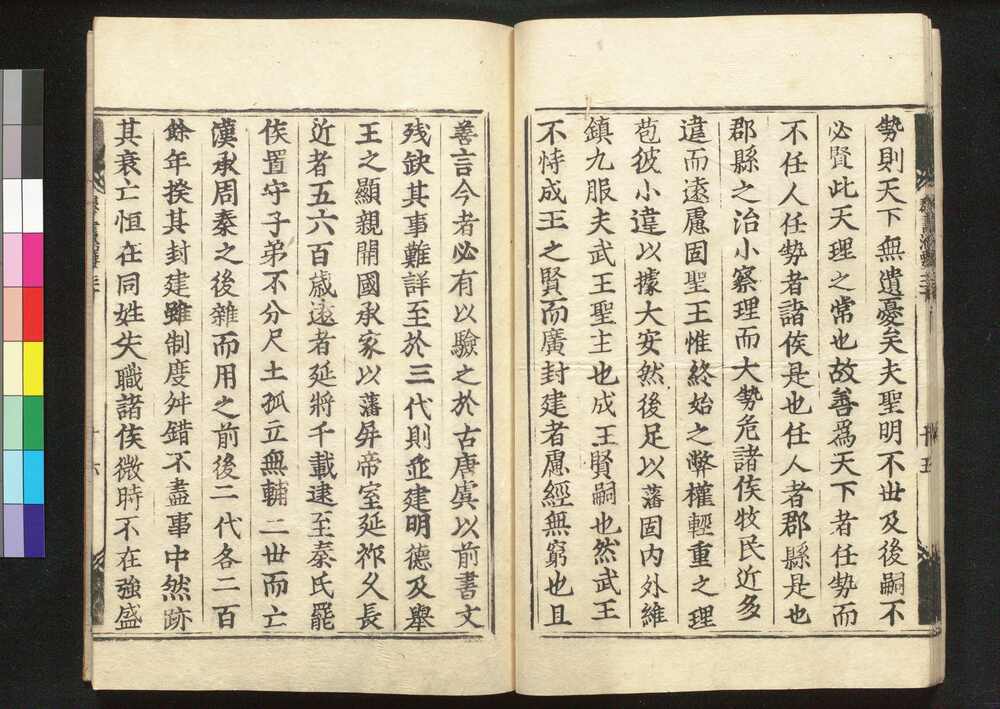 勢則天下無遺憂矣夫聖明不世及後嗣不
必賢此天理之常也故善為天下者任勢而
不任人任勢者諸侯是也任人者郡縣是也
郡縣之治小察理而大勢危諸侯牧民近多
違而遠慮固聖王惟終始之弊權輕重之理
苞彼小違以據大安然後足以藩固内外維
鎮九服夫武王聖主也成王賢嗣也然武王
不恃成王之賢而廣封建者慮經無窮也且
善言今者必有以驗之於古唐虞以前書文
残缺其事難詳至於三代則並建明德及舉
王之顯親開國承家以藩屏帝室延祚久長
近者五六百歳遠者延將千載逮至秦氏罷
侯置守子弟不分尺土孤立無輔二世而亡
漢承周秦之後雜而用之前後二代各二百
餘年揆其封建雖制度舛錯不盡事中然跡
其衰亡恒在同姓失職諸侯微時不在強盛
十六